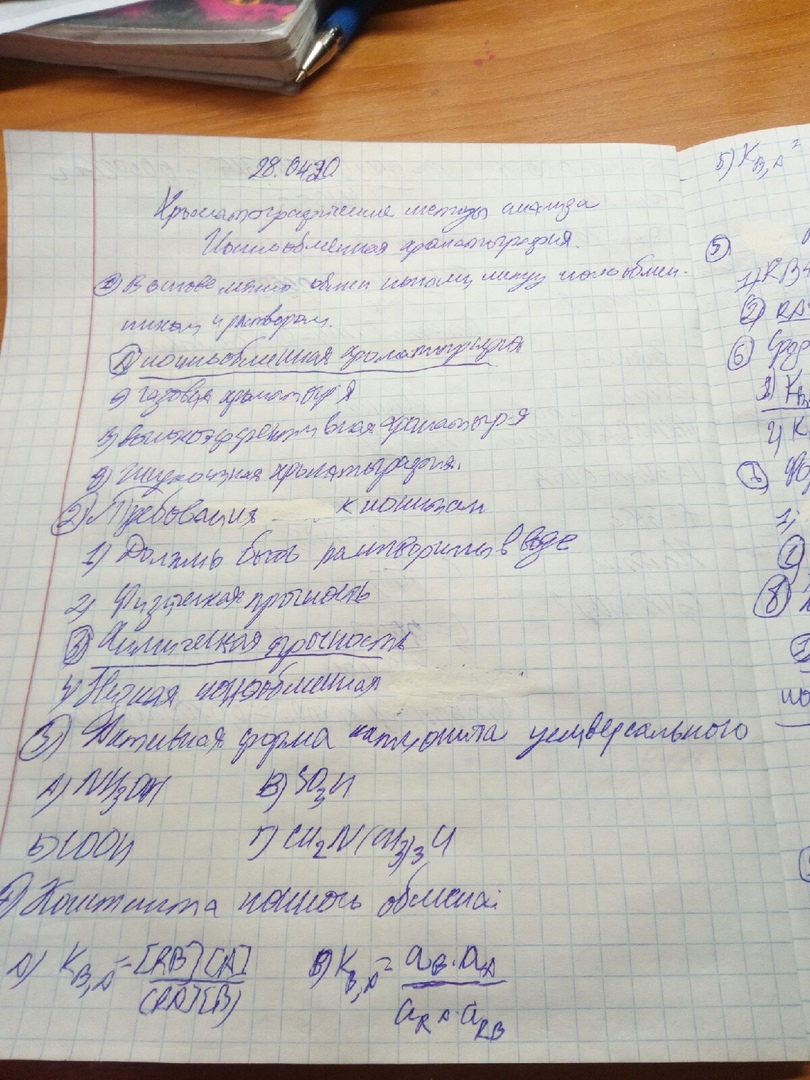 28.04.20
Хроматографические методы анализа
Ионообменная хроматография.
1) В основе метода обмен ионами между ионообмен-
ником и раствором.
1) ионообменная хроматография
2) газовая хроматогр-я
3) высокоэффективная хроматогр-я
4) Жидкостная хроматография.
2) Требования к ионитам
1) Должны быть растворимы в воде
2) Физическая прочность
3) Химическая прочность
4) Низкая ионообменная
3) Активная форма катионита универсального
А) NH3OH В) SO3H
Б) COOH Г) CH2N(CH3)3Cl
4) Константа ионного обмена:
А) K B,A = [RB][A] / [RA][B] В) K B,A = aB·aA / aRA·aRB
Б) K B,A =
5)
1) RB+
2) RA
6)
1) K
2) K
7)
1)
8)